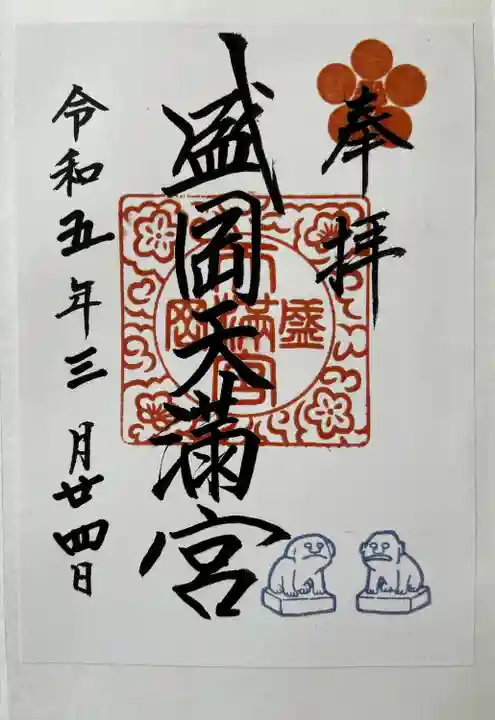 奉拝
盛岡天満宮
盛岡天満宮
令和五年三月廿四日